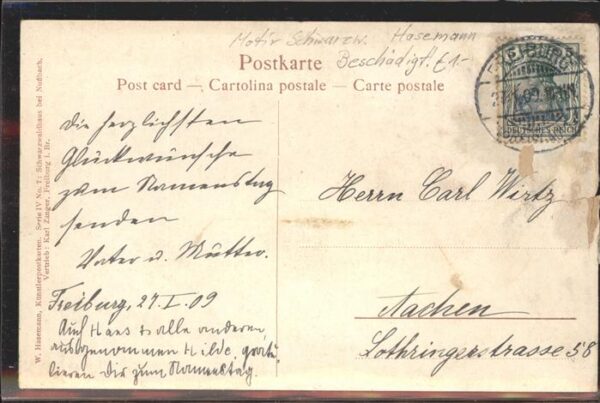 Motiv Schwarzw. Hasemann
Beschädigt. €1.-
Postkarte
Post card — Cartolina postale — Carte postale
FREIBURG
DEUTSCHES REICH
die herzlichsten
Glückwünsche
zum Namenstag
senden
Vater u. Mutter.
Freiburg, 27.I.09
Auch Hans & alle anderen,
ausgenommen Hilde, gratu-
lieren Dir zum Namenstag.
Herrn Carl Wirtz
Aachen
Lothringerstrasse 58
W. Hasemann, Künstlerpostkarten. Serie IV No. 7: Schwarzwaldhaus bei Nußbach.
Vertrieb: Karl Zanger, Freiburg i. Br.